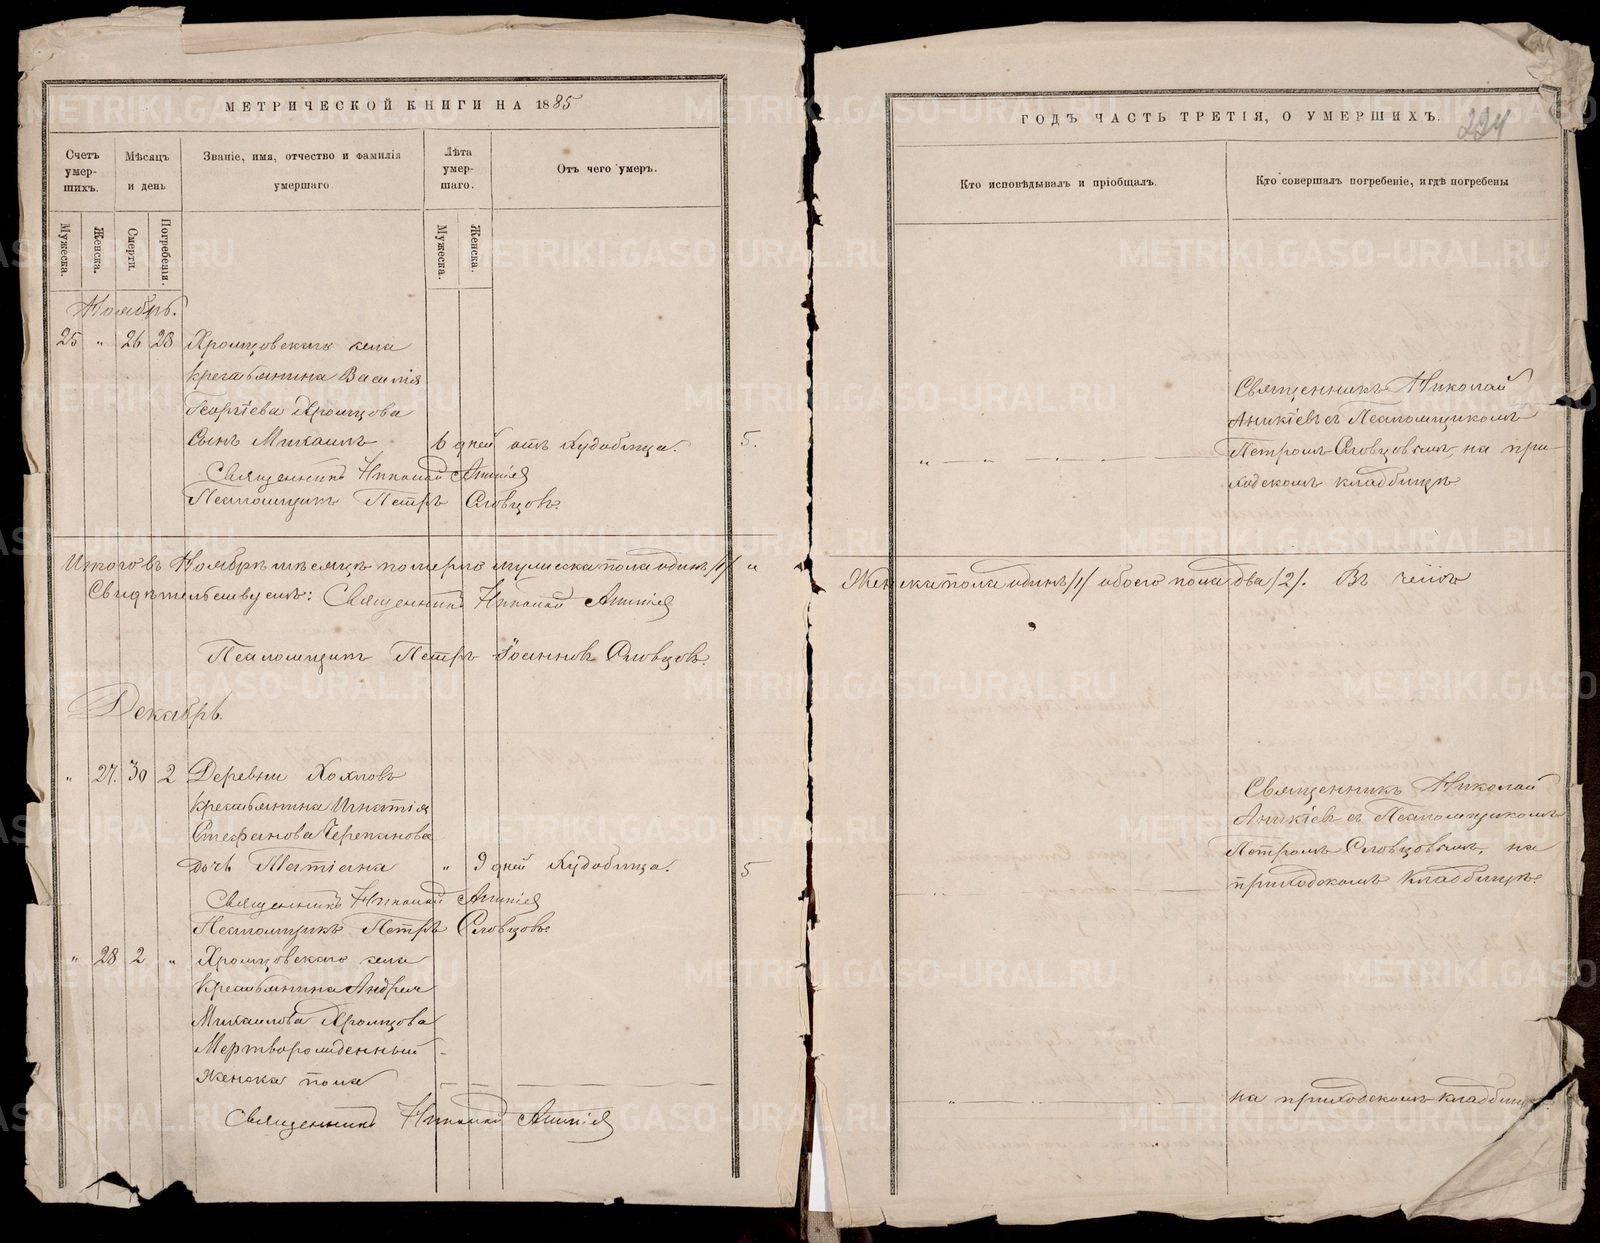 МЕТРИЧЕСКОЙ КНИГИ НА 1885
Счетъ умер-шихъ.
Мѣсяцъ и день
Званіе, имя, отчество и фамилія умершаго
Лѣта умер-шаго.
Отъ чего умеръ.
Мужеска.
Женска.
Смерти.
Погребенія.
Мужеска.
Женска.
Ноябрь.
25 „ 26 28 Хромцовскаго села
крестьянина Василія
Георгіева Хромцова
сынъ Михаилъ 6 дней отъ худобища. 5.
Священникъ Николай Аникіев
Псаломщикъ Петръ Словцовъ.
Итого въ Ноябрѣ мѣсяцѣ померло мужеска пола одинъ /1/ и
Свидѣтельствуемъ: Священникъ Николай Аникіев
Псаломщикъ Петръ Іоанновъ Словцовъ.
Декабрь.
„ 27. 30 2 Деревни Хохловъ
крестьянина Игнатія
Стефанова Черепанова
дочь Татіана „ 9 дней худобища. 5
Священникъ Николай Аникіев
Псаломщикъ Петръ Словцовъ
„ 28 2 „ Хромцовскаго села
Крестьянина Андрея
Михаилова Хромцова
Мертворожденный
Женска пола
Священникъ Николай Аникіев
ГОДЪ ЧАСТЬ ТРЕТІЯ, О УМЕРШИХЪ. 224
Кто исповѣдывалъ и пріобщалъ.
Кто совершалъ погребеніе, и гдѣ погребены
Священникъ Николай
Аникіевъ съ Псаломщикомъ
Петромъ Словцовымъ, на при-
ходскомъ кладбищѣ
Женска пола одинъ /1/ обоего пола два /2/. Въ чемъ
Священникъ Николай
Аникіевъ съ Псаломщикомъ
Петромъ Словцовымъ, на
приходскомъ кладбищѣ.
на приходскомъ кладбищѣ.
METRIKI.GASO-URAL.RU